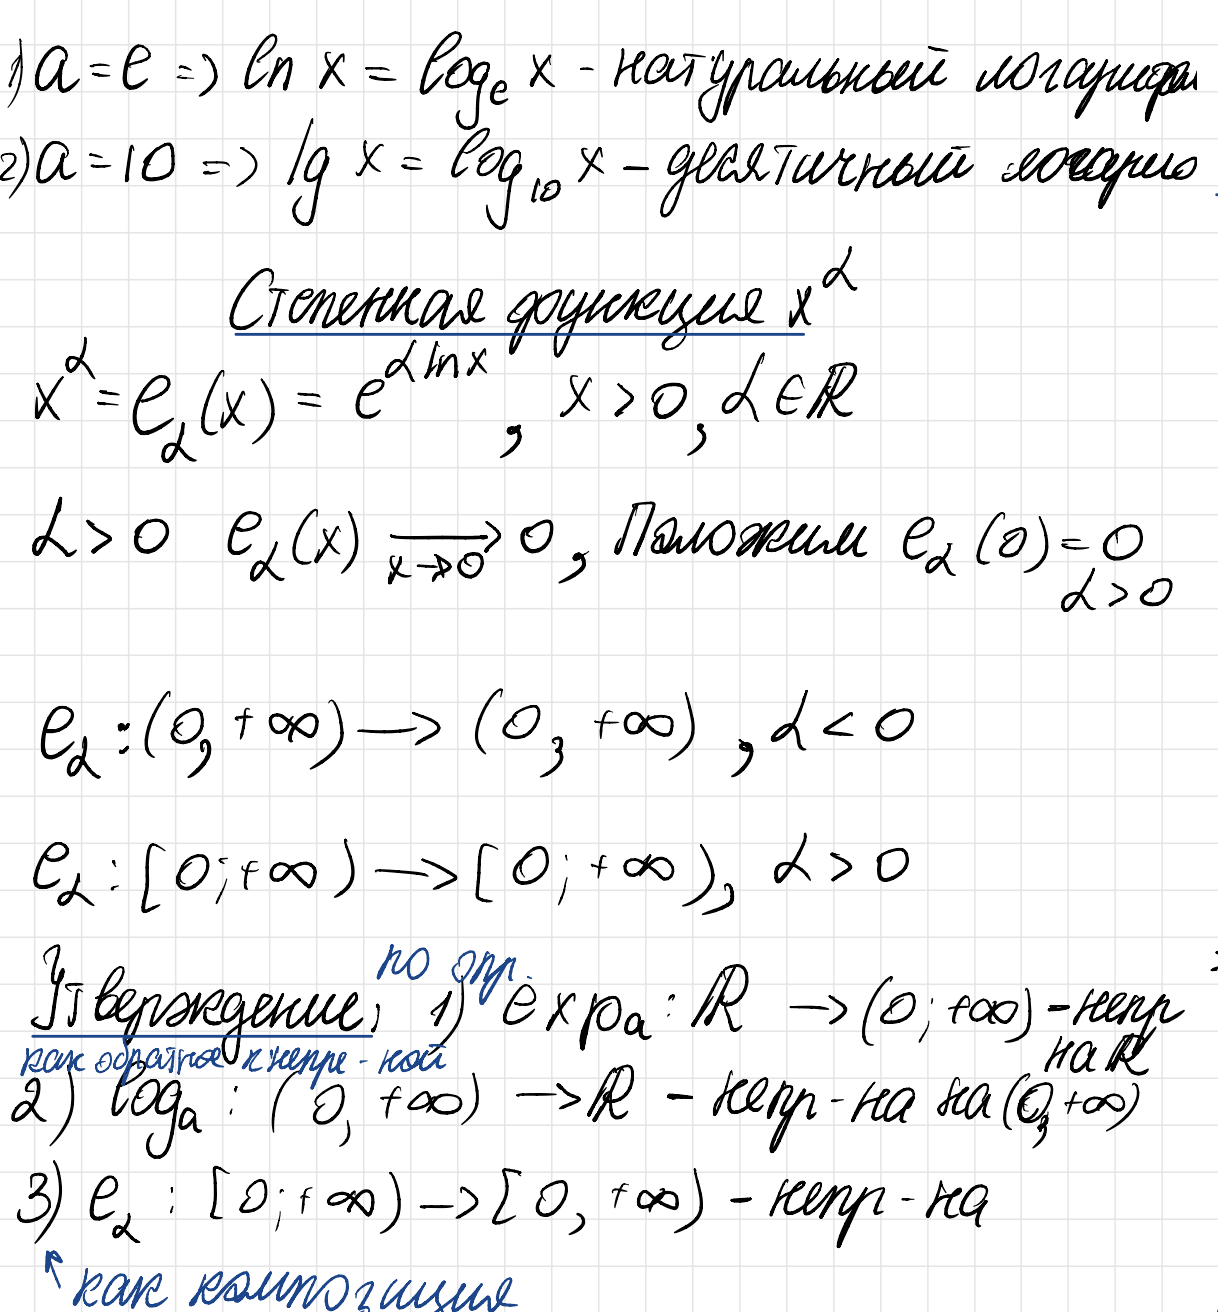 1) a = e => ln x = logₑ x - натуральный логарифм
2) a = 10 => lg x = log₁₀ x – десятичный логарифм
Степенная функция x^α
x^α = e_α(x) = e^(α ln x), x > 0, α ∈ ℝ
α > 0 e_α(x) ⟶ 0, Положим e_α(0) = 0
x→0 α > 0
e_α : (0, +∞) → (0, +∞), α < 0
e_α : [0; +∞) → [0; +∞), α > 0
по опр.
Утверждение, 1) exp_a : ℝ → (0; +∞) - непр
как обратное к непр-ной на ℝ
2) log_a : (0, +∞) → ℝ - непр-на на (0, +∞)
3) e_α : [0; +∞) → [0, +∞) - непр-на
↖ как композиция